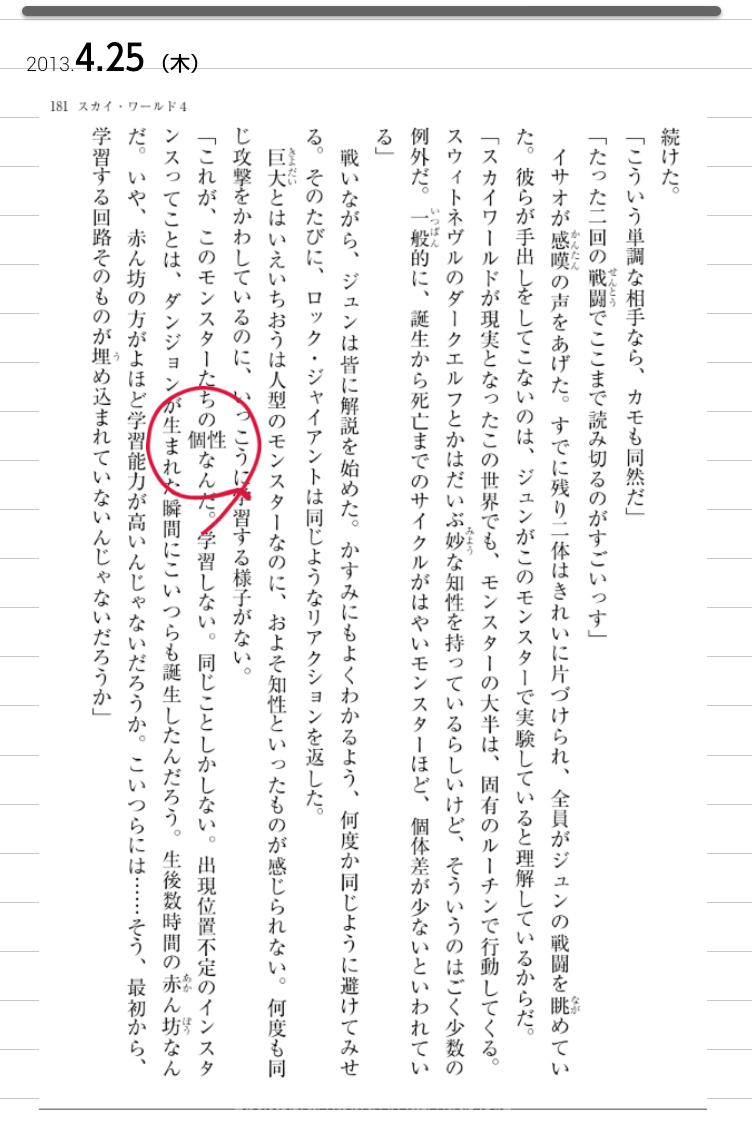 2013.4.25（木）
181 スカイ・ワールド4
続けた。
「こういう単調な相手なら、カモも同然だ」
「たった二回の戦闘でここまで読み切るのがすごいっす」
イサオが感嘆の声をあげた。すでに残り二体はきれいに片づけられ、全員がジュンの戦闘を眺めてい
た。彼らが手出しをしてこないのは、ジュンがこのモンスターで実験していると理解しているからだ。
「スカイワールドが現実となったこの世界でも、モンスターの大半は、固有のルーチンで行動してくる。
スウィトネヴルのダークエルフとかはだいぶ妙な知性を持っているらしいけど、そういうのはごく少数の
例外だ。一般的に、誕生から死亡までのサイクルがはやいモンスターほど、個体差が少ないといわれてい
る」
戦いながら、ジュンは皆に解説を始めた。かすみにもよくわかるよう、何度か同じように避けてみせ
る。そのたびに、ロック・ジャイアントは同じようなリアクションを返した。
巨大とはいえいちおうは人型のモンスターなのに、およそ知性といったものが感じられない。何度も同
じ攻撃をかわしているのに、いっこうに学習する様子がない。
「これが、このモンスターたちの個性なんだ。学習しない。同じことしかしない。出現位置不定のインスタ
ンスってことは、ダンジョンが生まれた瞬間にこいつらも誕生したんだろう。生後数時間の赤ん坊なん
だ。いや、赤ん坊の方がよほど学習能力が高いんじゃないだろうか。こいつらには……そう、最初から、
学習する回路そのものが埋め込まれていないんじゃないだろうか」